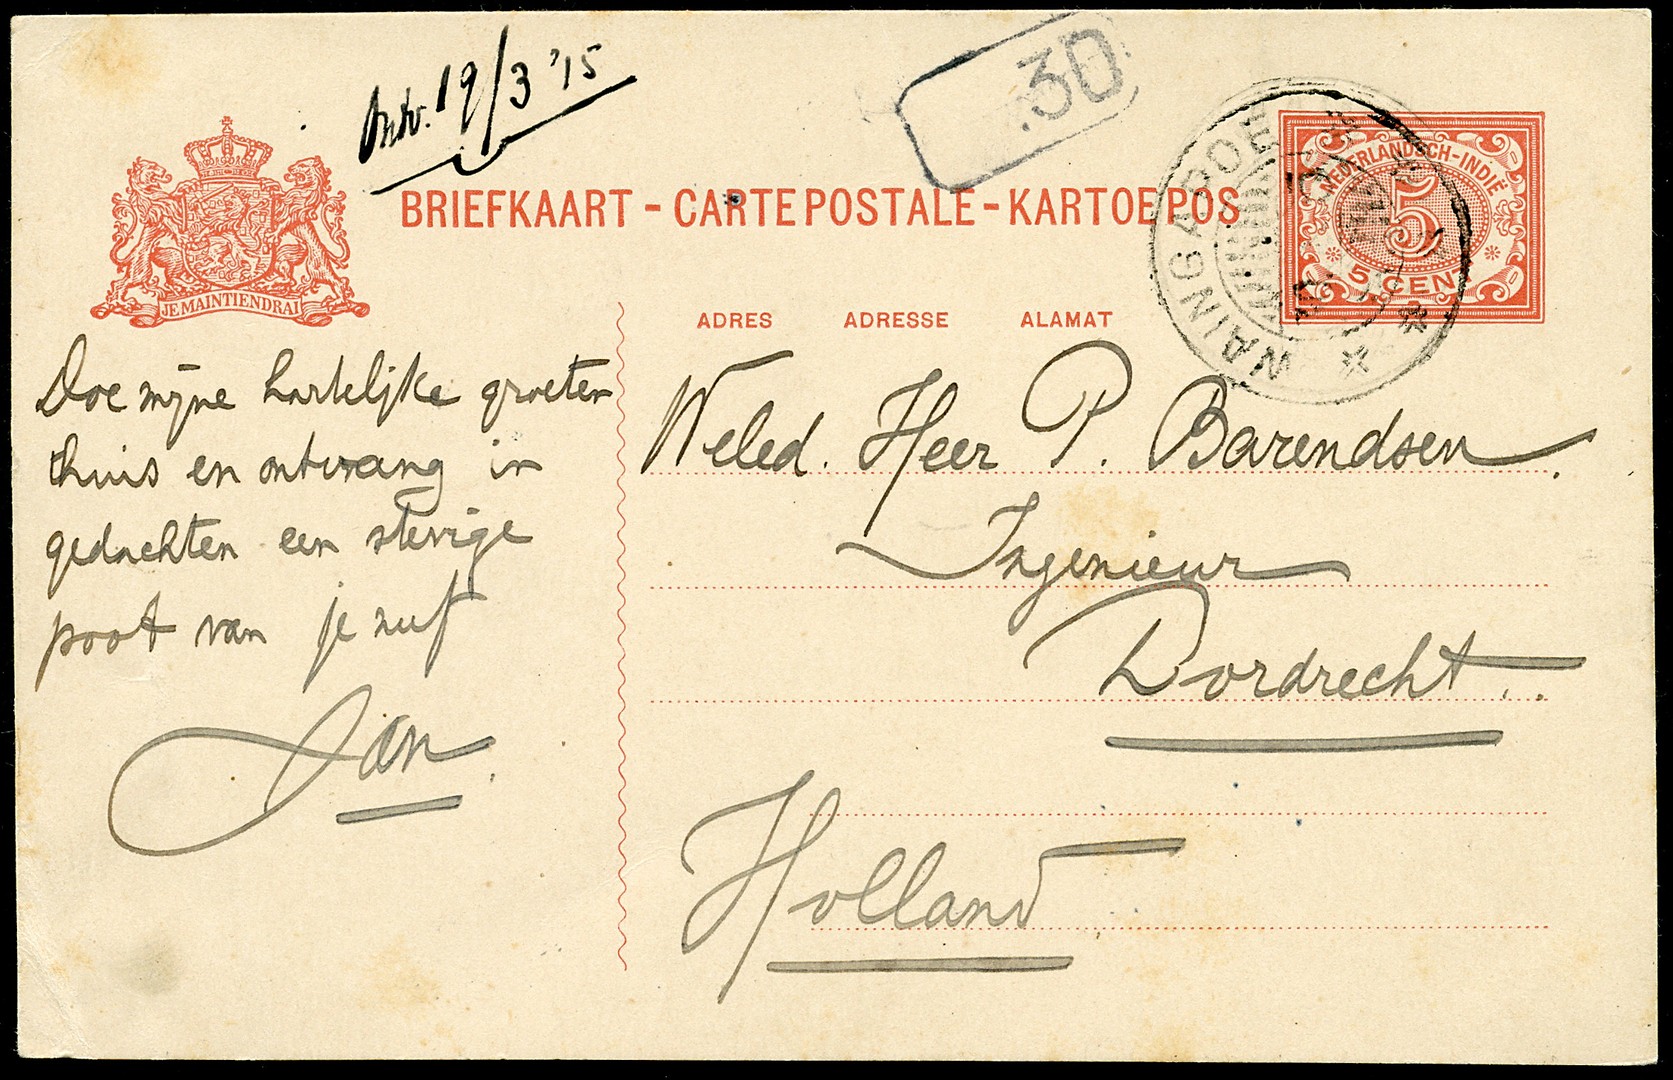 Ontv. 19/3 '15
.30
BRIEFKAART - CARTE POSTALE - KARTOE POS
JE MAINTIENDRAI
WAINGAPOE
NEDERLANDSCH-INDIË
5
5 CENT
ADRES ADRESSE ALAMAT
Doe mijne hartelijke groeten
thuis en ontvang in
gedachten een stevige
poot van je neef
Jan
Weled. Heer P. Barendsen.
Ingenieur
Dordrecht.
Holland